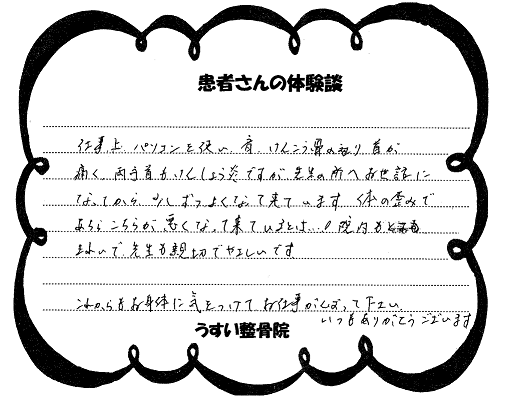 患者さんの体験談
仕事上パソコンを使い、肩、けんこう骨の辺り首が
痛く、両手首もけんしょう炎ですが先生の所へお世話に
なってから、少しずつよくなって来ています 体の歪みで
あちらこちらが悪くなって来ているとは…!院内も
きれいで先生も親切でやさしいです
これからもお身体に気をつけてお仕事がんばって下さい
いつもありがとうございます
うすい整骨院